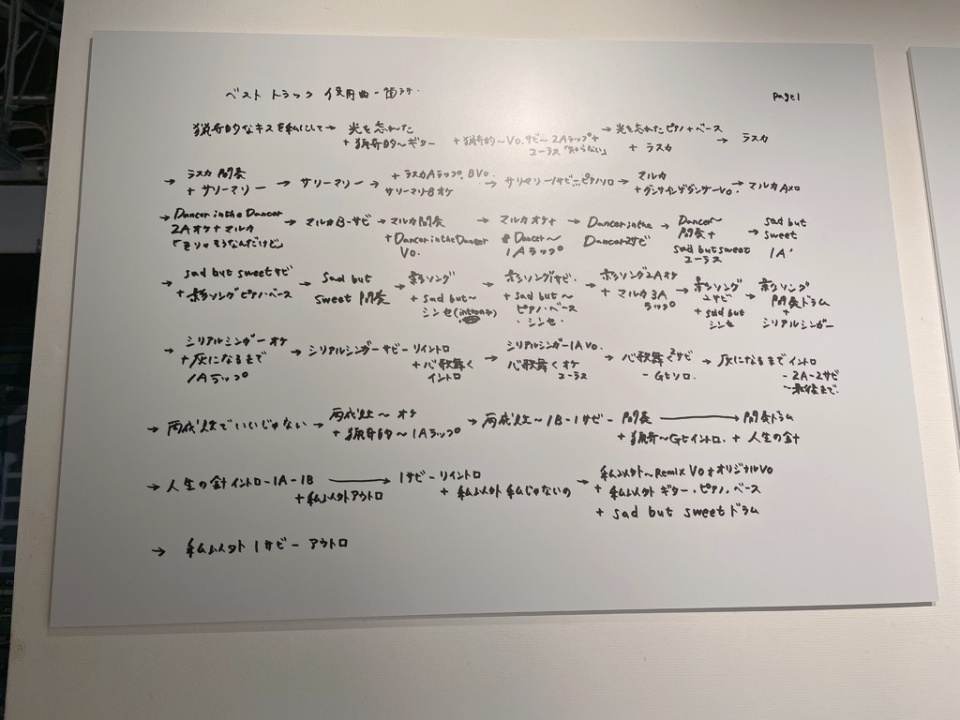 ベスト トラック 使用曲一覧ラフ.
page1
猟奇的なキスを私にして → 光を忘れた + 猟奇的〜ギター + 猟奇的〜Vo.サビ〜2Aラップ+コーラス「分からない」 → 光を忘れたピアノ+ベース + ラスカ → ラスカ
→ ラスカ 間奏 + サリーマリー → サリーマリー → + ラスカAラップ,BVo. サリーマリーBオケ → サリマリー1サビ…ピアノソロ → マルカ + ダンサーインザダンサーVo. → マルカAメロ
→ Dancer in the Dancer 2Aオケ+マルカ 「そりゃそうなんだけど」 → マルカB-サビ → マルカ間奏 + Dancer in the Dancer Vo. → マルカオケ+ Dancer〜 1Aラップ → Dancer in the Dancer2サビ → Dancer〜 間奏+ sad but sweet コーラス → sad but sweet 1A'
→ sad but sweetサビ + 影ソングピアノ・ベース → sad but sweet 間奏 → 影ソング + sad but〜 シンセ → 影ソング1サビ. + sad but〜 ピアノ・ベース ・シンセ・ → 影ソング2Aオケ + マルカ3A ラップ → 影ソング 2サビ + sad but シンセ → 影ソング 間奏ドラム + シリアルシンガー
→ シリアルシンガーオケ + 灰になるまで 1Aラップ → シリアルシンガーサビーリイントロ + 心歌舞く イントロ → シリアルシンガー1AVo. 心歌舞くオケ コーラス → 心歌舞く2サビ - Gtソロ. → 灰になるまでイントロ - 2A-2サビ 〜最後まで.
→ 丙代災でいいじゃない → 丙代災〜オケ + 猟奇的〜1Aラップ → 丙代災〜1B-1サビ- 間奏 + 猟奇〜Gtイントロ. → 間奏ドラム + 人生の針
→ 人生の針イントロ-1A-1B + 私以外アウトロ → 1サビーリイントロ + 私以外私じゃないの → 私以外〜Remix Vo+オリジナルVo + 私以外 ギター・ピアノ・ベース + sad but sweetドラム
→ 私以外 1サビー アウトロ